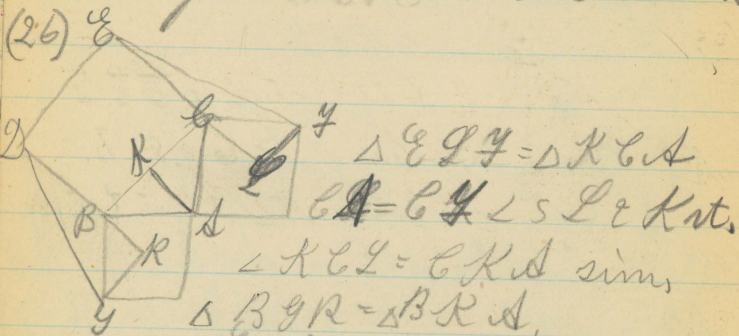 (26)
E
D
C
F
K
L
B
A
R
G
△ E L F = △ K C A
C A = C F ∠ s L & K rt.
∠ K C L = C K A sim,
△ B G R = △ B K A.